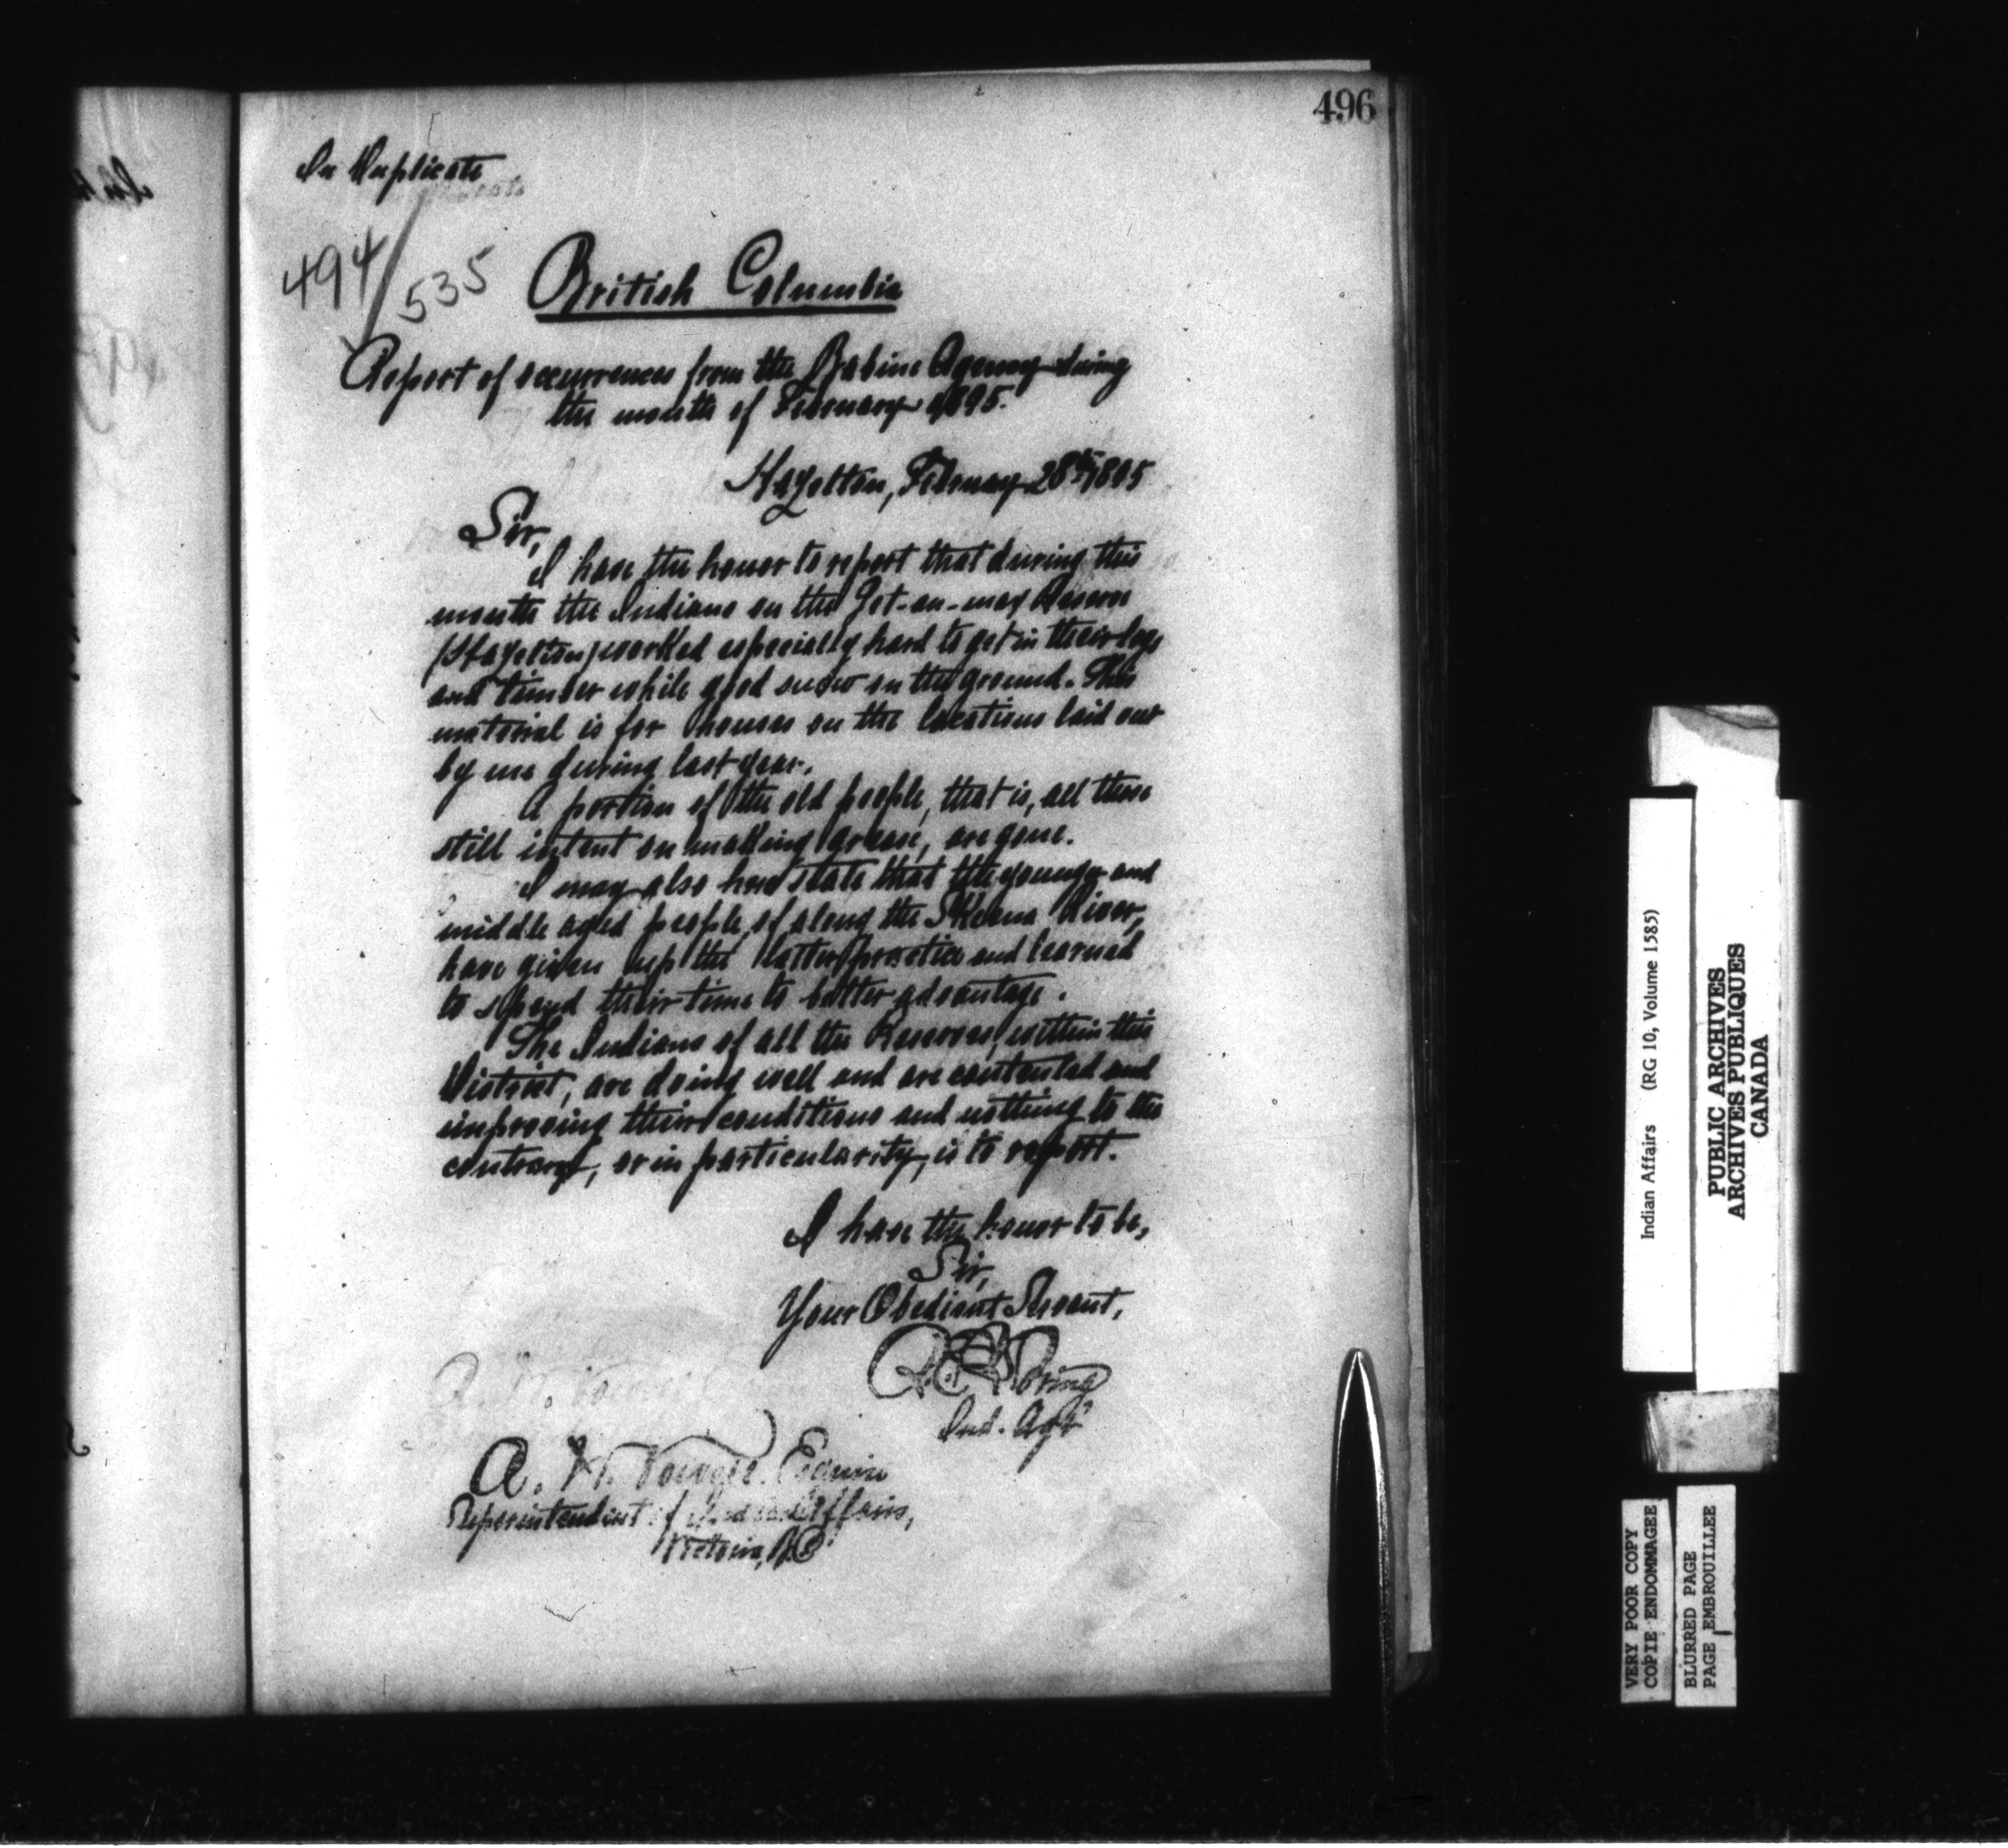 496
In Duplicate
494/535
British Columbia
Report of occurrences from the Babine Agency during
the month of February 1895.
Hazelton, February 28th 1895
Sir,
I have the honor to report that during this
month the Indians on the Get-an-max Reserve
(Hazelton) worked especially hard to get in their logs
and timber while good snow on the ground. This
material is for houses on the locations laid out
by me during last year.
A portion of the old people, that is, all those
still intent on making grease, are gone.
I may also here state that the younger and
middle aged people, of along the Skeena River,
have given up the latter practice and learned
to spend their time to better advantage.
The Indians of all the Reserves, within this
District, are doing well and are contented and
improving their conditions and nothing to the
contrary, or in particularity, is to report.
I have the honor to be,
Sir,
Your Obedient Servant,
R. E. Loring
Ind. Agt
A. W. Vowell Esquire
Superintendent of Indian Affairs,
Victoria, B.C.
Indian Affairs (RG 10, Volume 1585)
PUBLIC ARCHIVES
ARCHIVES PUBLIQUES
CANADA
VERY POOR COPY
COPIE ENDOMMAGEE
BLURRED PAGE
PAGE EMBROUILLEE